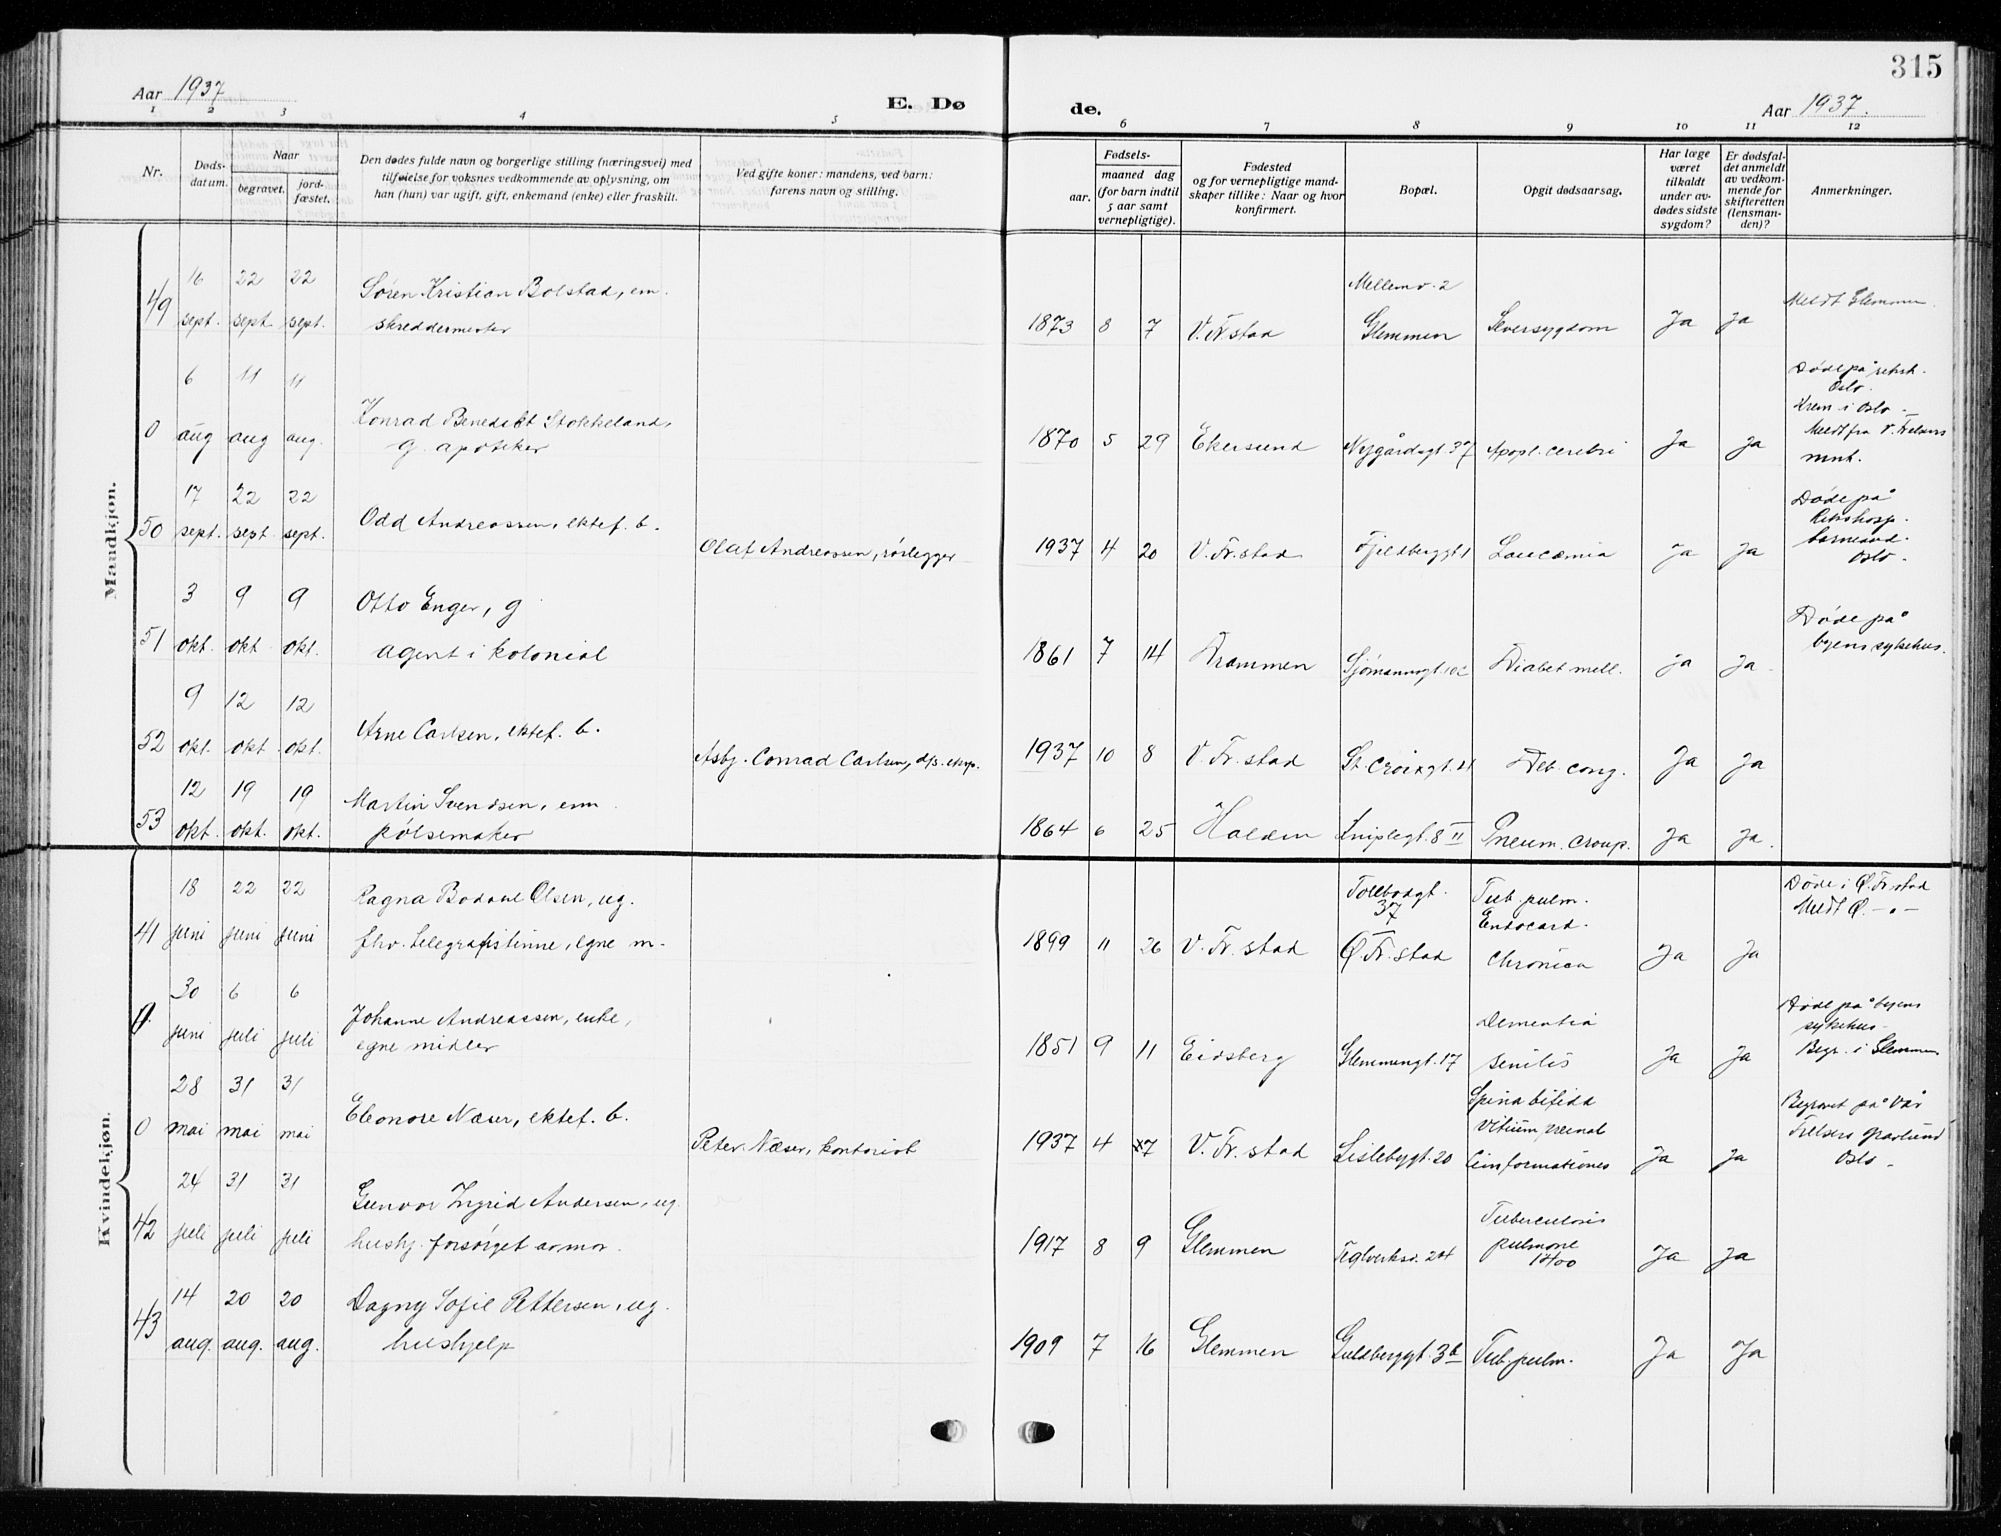 315
Aar 1937
E. Dø
de.
Aar 1937.
1 2 3 4 5 6 7 8 9 10 11 12
Nr.
Døds-
datum.
Naar
begravet.
jord-
fæstet.
Den dødes fulde navn og borgerlige stilling (næringsvei) med
tilføielse for voksnes vedkommende av oplysning, om
han (hun) var ugift, gift, enkemand (enke) eller fraskilt.
Ved gifte koner: mandens, ved barn:
farens navn og stilling.
Fødsels-
aar.
maaned dag
(for barn indtil
5 aar samt
vernepligtige).
Fødested
og for vernepligtige mand-
skaper tillike: Naar og hvor
konfirmert.
Bopæl.
Opgit dødsaarsag.
Har læge
været
tilkaldt
under av-
dødes sidste
sygdom?
Er dødsfal-
det anmeldt
av vedkom-
mende for
skifteretten
(lensman-
den)?
Anmerkninger.
Maadkjøn.
49
16 22 22
sept. sept sept.
Søren Kristian Bolstad, em.
skreddermester
1873 8 7
V. Fr.stad
Mellemv. 2
Glemmen
Leversygdom
Ja Ja
Meldt Glemmen.
0
6 11 11
aug aug aug.
Konrad Benedikt Stokkeland,
g. apoteker
1870 5 29
Ekersund
Nygårdsgt. 37
Apopl. cerebri
Ja Ja
Døde på riksh.
Oslo.
Krem. i Oslo.
Meldt fra V. Frelsers
mnh.
50
17 22 22
sept. sept. sept.
Odd Andreassen, ektef. b.
Olaf Andreassen, rørlegger
1937 4 20
V. Fr. stad
Fjeldberggt. 1
Leucæmia
Ja Ja
Døde på
Rikshosp.
barneavd.
Oslo.
51
3 9 9
okt. okt. okt.
Otto Enger, g
agent i kolonial
1861 7 14
Drammen
Sjømannsgt. 10
Diabet mell.
Ja Ja.
Døde på
byens sykehus.
52
9 12 12
okt. okt. okt.
Arne Carlsen, ektef. b.
Asbj. Conrad Carlsen, d/s. eksp.
1937 10 8
V. Fr. stad
St. Croixgt. 21
Deb. cong.
Ja Ja
53
12 19 19
okt. okt. okt.
Martin Svendsen, enm.
pølsemaker
1864 6 25
Halden
Sniplegt. 8 II
Pneum. croup.
Ja Ja.
Kvindekjøn.
41
18 22 22
juni juni juni
Ragna Bodahl Olsen, ug.
fhv. telegrafistinne, egne m-
1899 11 26
V. Fr. stad
Tollbodgt.
37
Ø. Fr. stad
Tub. pulm.
Endocard.
chronica
Ja Ja
Døde i Ø. Fr stad
Meldt Ø. -"-
0
30 6 6
juni juli juli
Johanne Andreassen, enke,
egne midler
1851 9 11
Eidsberg
Glemmengt. 17
Dementia
senilis
Ja Ja
Døde på byens
sykehus.
Begr. i Glemmen
0
28 31 31
mai mai mai
Eleonore Næser, ektef. b.
Peter Næser, kontorist
1937 4 7
V. Fr. stad
Lislebygt. 20
Spina bifida
Vitium
Ja Ja
Begravet på Vår
Frelsers gravlund
Oslo.
42
24 31 31
juli juli juli
Gunvor Ingrid Andersen, ug.
hushj. forsørget av mor.
1917 8 9
Glemmen
Teglverksv. 24
Tuberculosis
pulmone
Ja Ja
43
14 20 20
aug. aug. aug.
Dagny Sofie Pettersen, ug.
hushjelp
1909 7 16
Glemmen
Guldberggt. 3b
Tub. pulm.
Ja Ja